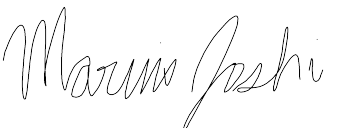 Marius Joshi